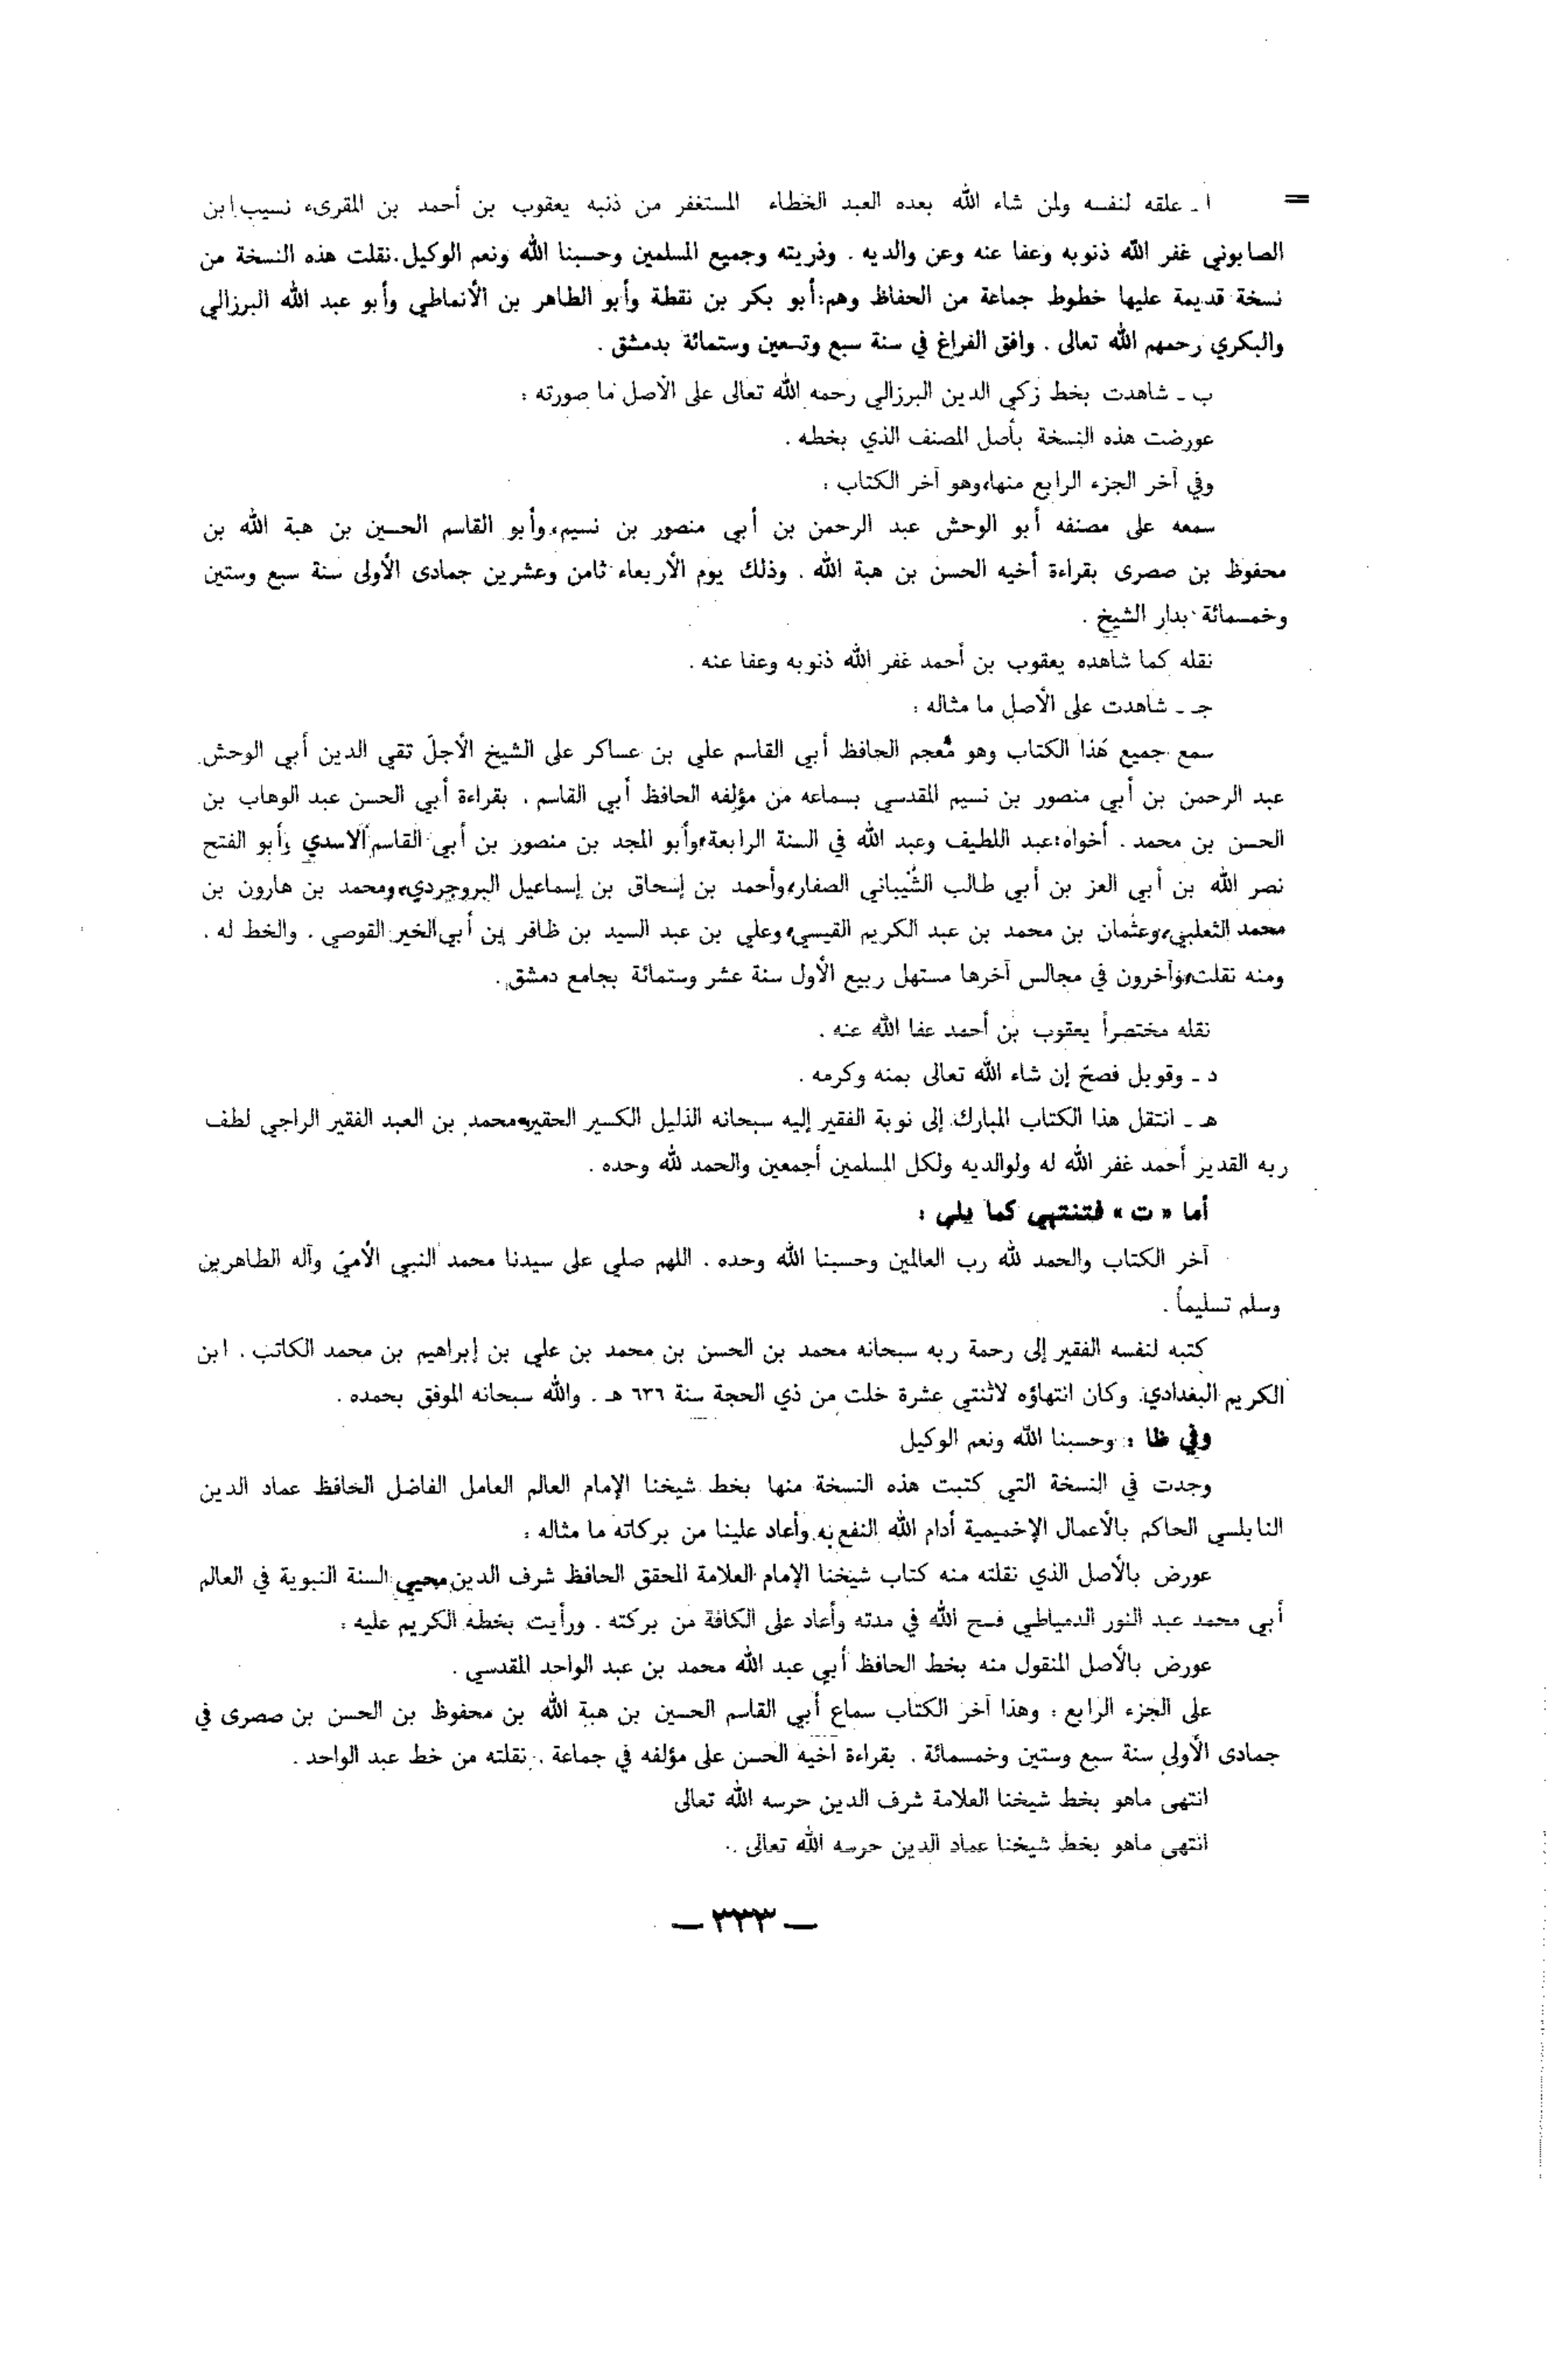 = ا ـ علقه لنفسه ولمن شاء الله بعده العبد الخطاء المستغفر من ذنبه يعقوب بن أحمد بن المقرىء نسيب ابن
الصابوني غفر الله ذنوبه وعفا عنه وعن والديه . وذريته وجميع المسلمين وحسبنا الله ونعم الوكيل . نقلت هذه النسخة من
نسخة قديمة عليها خطوط جماعة من الحفاظ وهم : أبو بكر بن نقطة وأبو الطاهر بن الأنماطي وأبو عبد الله البرزالي
والبكري رحمهم الله تعالى . وافق الفراغ في سنة سبع وتسعين وستمائة بدمشق .
ب ـ شاهدت بخط زكي الدين البرزالي رحمه الله تعالى على الأصل ما صورته :
عورضت هذه النسخة بأصل المصنف الذي بخطه .
وفي آخر الجزء الرابع منها، وهو آخر الكتاب :
سمعه على مصنفه أبو الوحش عبد الرحمن بن أبي منصور بن نسيم، وأبو القاسم الحسين بن هبة الله بن
محفوظ بن صصرى بقراءة أخيه الحسن بن هبة الله . وذلك يوم الأربعاء ثامن وعشرين جمادى الأولى سنة سبع وستين
وخمسمائة بدار الشيخ .
نقله كما شاهده يعقوب بن أحمد غفر الله ذنوبه وعفا عنه .
جـ ـ شاهدت على الأصل ما مثاله :
سمع جميع هذا الكتاب وهو معجم الحافظ أبي القاسم علي بن عساكر على الشيخ الأجلّ تقي الدين أبي الوحش
عبد الرحمن بن أبي منصور بن نسيم المقدسي بسماعه من مؤلفه الحافظ أبي القاسم . بقراءة أبي الحسن عبد الوهاب بن
الحسن بن محمد . أخواه : عبد اللطيف وعبد الله في السنة الرابعة، وأبو المجد بن منصور بن أبي القاسم الأسدي وأبو الفتح
نصر الله بن أبي العز بن أبي طالب الشّيباني الصفار، وأحمد بن إسحاق بن إسماعيل البروجردي، ومحمد بن هارون بن
محمد الثعلبي، وعثمان بن محمد بن عبد الكريم القيسي، وعلي بن عبد السيد بن ظافر بن أبي الخير القوصي . والخط له .
ومنه نقلت، وآخرون في مجالس آخرها مستهل ربيع الأول سنة عشر وستمائة بجامع دمشق .
نقله مختصراً يعقوب بن أحمد عفا الله عنه .
د ـ وقوبل فصحّ إن شاء الله تعالى بمنه وكرمه .
هـ ـ انتقل هذا الكتاب المبارك إلى نوبة الفقير إليه سبحانه الذليل الكسير الحقير، محمد بن العبد الفقير الراجي لطف
ربه القدير أحمد غفر الله له ولوالديه ولكل المسلمين أجمعين والحمد لله وحده .
أما « ت » فتنتهي كما يلي :
آخر الكتاب والحمد لله رب العالمين وحسبنا الله وحده . اللهم صلي على سيدنا محمد النبي الأميّ وآله الطاهرين
وسلم تسليماً .
كتبه لنفسه الفقير إلى رحمة ربه سبحانه محمد بن الحسن بن محمد بن علي بن إبراهيم بن محمد الكاتب . ابن
الكريم البغدادي. وكان انتهاؤه لاثنتي عشرة خلت من ذي الحجة سنة ٦٣٦ هـ . والله سبحانه الموفق بحمده .
وفي ظا : وحسبنا الله ونعم الوكيل
وجدت في النسخة التي كتبت هذه النسخة منها بخط شيخنا الإمام العالم العامل الفاضل الحافظ عماد الدين
النابلسي الحاكم بالأعمال الإخميمية أدام الله النفع به وأعاد علينا من بركاته ما مثاله :
عورض بالأصل الذي نقلته منه كتاب شيخنا الإمام العلامة المحقق الحافظ شرف الدين محيي السنة النبوية في العالم
أبي محمد عبد النور الدمياطي فسح الله في مدته وأعاد على الكافة من بركته . ورأيت بخطه الكريم عليه :
عورض بالأصل المنقول منه بخط الحافظ أبي عبد الله محمد بن عبد الواحد المقدسي .
على الجزء الرابع : وهذا آخر الكتاب سماع أبي القاسم الحسين بن هبة الله بن محفوظ بن الحسن بن صصرى في
جمادى الأولى سنة سبع وستين وخمسمائة . بقراءة أخيه الحسن على مؤلفه في جماعة . نقلته من خط عبد الواحد .
انتهى ماهو بخط شيخنا العلامة شرف الدين حرسه الله تعالى
انتهى ماهو بخط شيخنا عماد الدين حرسه الله تعالى .
— ٣٣٣ —